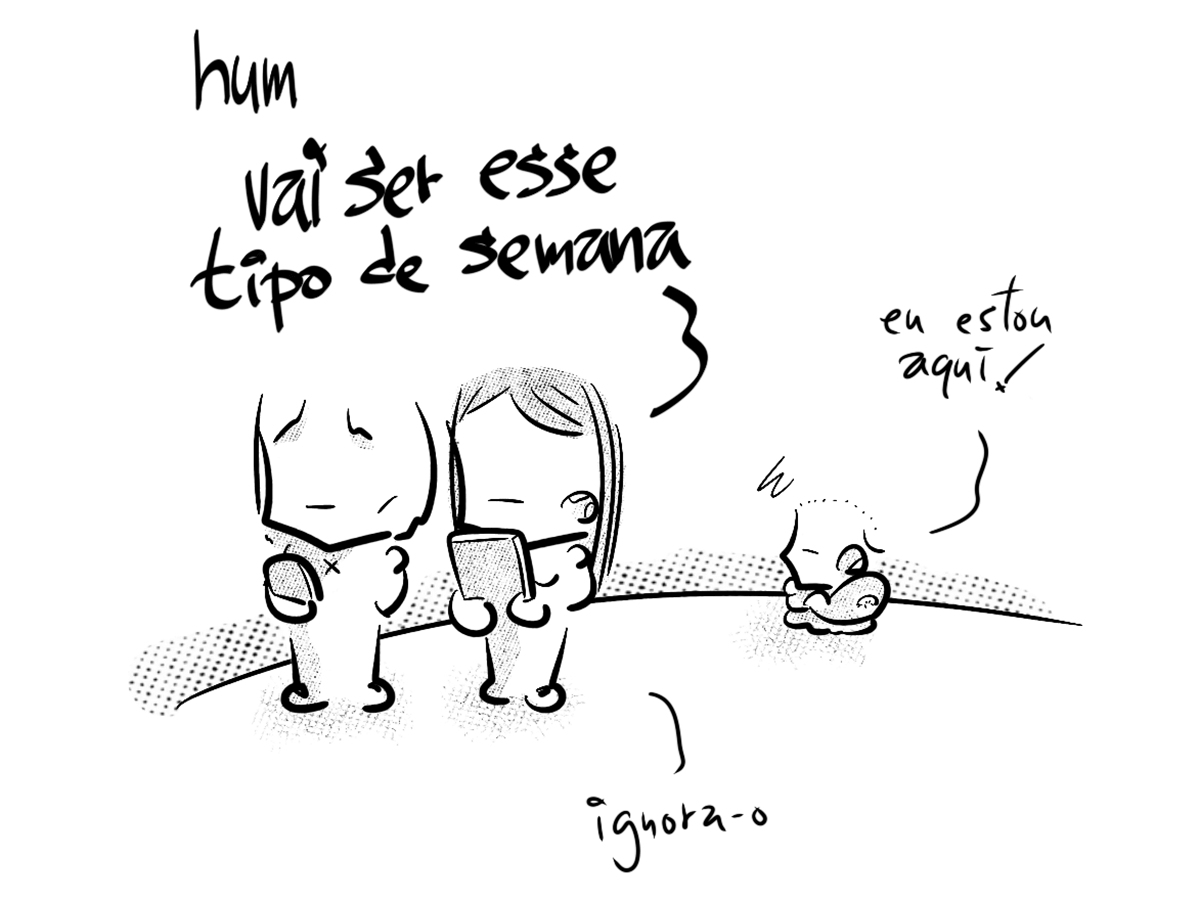 hum
vai ser esse
tipo de semana
eu estou
aqui!
ignora-o